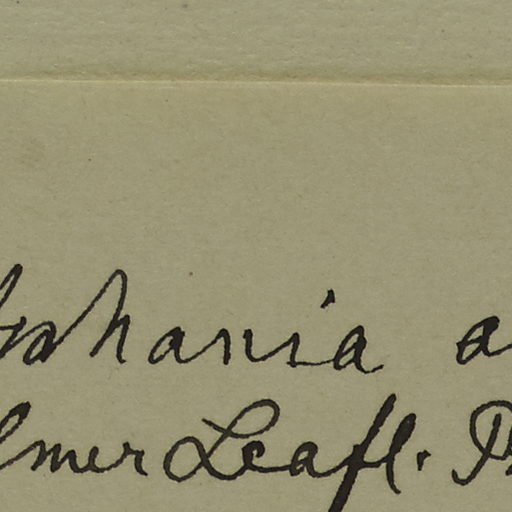 phania a
lmer Leafl. P